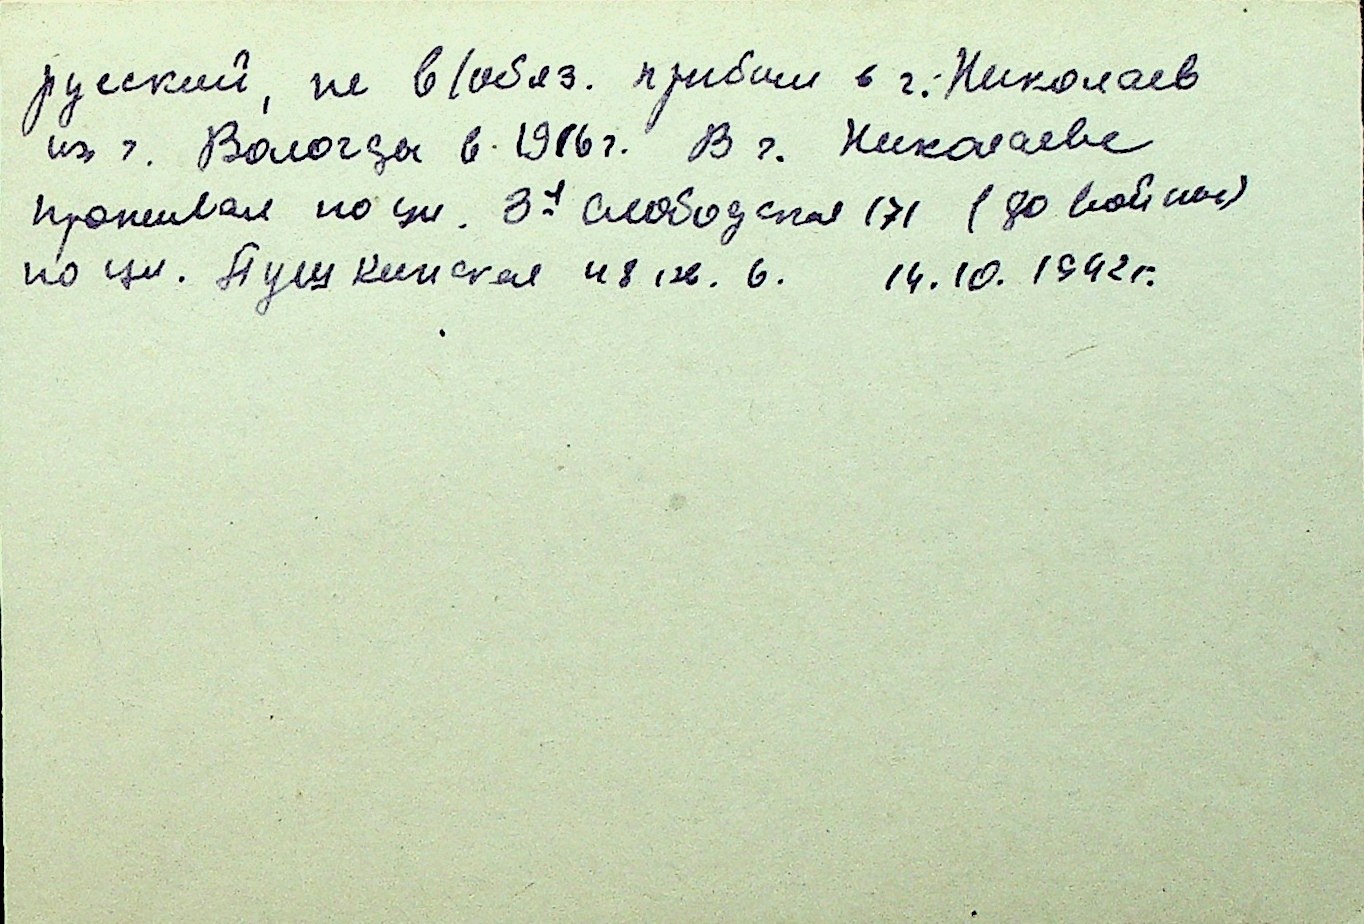 русский, не в/обяз. прибыл в г. Николаев
из г. Вологды в 1916г. В г. Николаеве
проживал по ул. 3я Слободская 171 (до войны)
по ул. Пушкинская 48 кв. 6. 14.10.1942г.